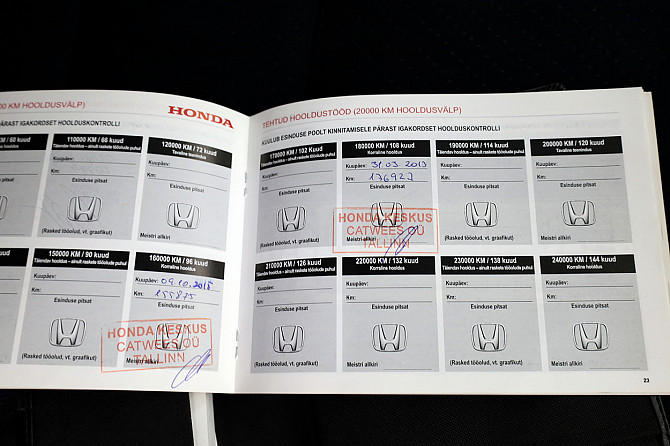 00 KM HOOLDUSVÄLP)
HONDA
PÄRAST IGAKORDSET HOOLDUSKONTROLLI
KM / 60 kuud
hooldus
110000 KM / 66 kuud
Täiendav hooldus - ainult raskete tööolude puhul
Kuupäev:
Km:
Esinduse pitsat
(Rasked tööolud, vt. graafikut)
120000 KM / 72 kuud
Tavaline teenindus
Kuupäev:
Km:
Esinduse pitsat
Meistri allkiri
150000 KM / 90 kuud
Täiendav hooldus - ainult raskete tööolude puhul
Kuupäev:
Km:
Esinduse pitsat
(Rasked tööolud, vt. graafikut)
160000 KM / 96 kuud
Korraline hooldus
Kuupäev: 09.10.2018
Km: 155875
Esinduse pitsat
HONDA KESKUS
CATWEES OÜ
TALLINN
Meistri allkiri
TEHTUD HOOLDUSTÖÖD (20000 KM HOOLDUSVÄLP)
KUULUB ESINDUSE POOLT KINNITAMISELE PÄRAST IGAKORDSET HOOLDUSKONTROLLI
170000 KM / 102 kuud
Täiendav hooldus - ainult raskete tööolude puhul
Kuupäev:
Km:
Esinduse pitsat
(Rasked tööolud, vt. graafikut)
180000 KM / 108 kuud
Korraline hooldus
Kuupäev: 31.03.2019
Km: 176927
Esinduse pitsat
HONDA KESKUS
CATWEES OÜ
TALLINN
Meistri allkiri
190000 KM / 114 kuud
Täiendav hooldus - ainult raskete tööolude puhul
Kuupäev:
Km:
Esinduse pitsat
(Rasked tööolud, vt. graafikut)
200000 KM / 120 kuud
Tavaline teenindus
Kuupäev:
Km:
Esinduse pitsat
Meistri allkiri
210000 KM / 126 kuud
Täiendav hooldus - ainult raskete tööolude puhul
Kuupäev:
Km:
Esinduse pitsat
(Rasked tööolud, vt. graafikut)
220000 KM / 132 kuud
Korraline hooldus
Kuupäev:
Km:
Esinduse pitsat
Meistri allkiri
230000 KM / 138 kuud
Täiendav hooldus - ainult raskete tööolude puhul
Kuupäev:
Km:
Esinduse pitsat
(Rasked tööolud, vt. graafikut)
240000 KM / 144 kuud
Korraline hooldus
Kuupäev:
Km:
Esinduse pitsat
Meistri allkiri
23